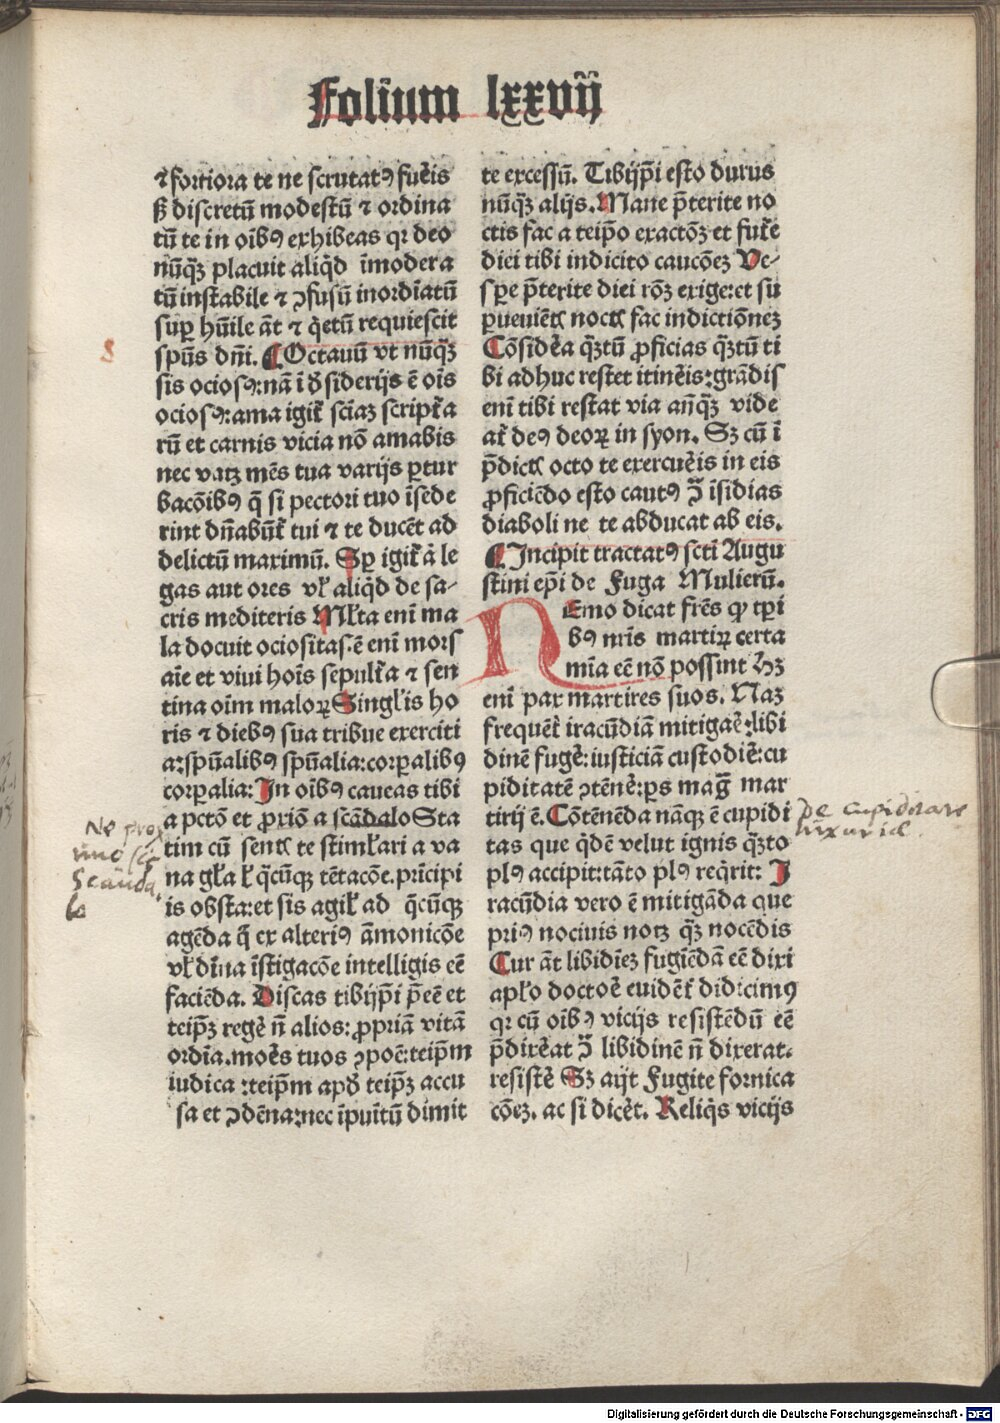 Folium lxxvij
⁊ fortiora te ne scrutatꝰ fuēis
ß discretū modestū ⁊ ordina
tū te in oībꝰ exhibeas qꝛ deo
nūqꝫ placuit aliqd̄ īmodera
tū instabile ⁊ ꝯfusū inordīatū
suꝑ hūile āt ⁊ q̇etū requiescit
spūs dn̄i. ¶ Octauū vt nūqꝫ
sis ociosꝰ: nā ī d̄siderijs ē oīs
ociosꝰ: ama igit̄ sciāꝫ script̄a
rū et carnis vicia nō amabis
nec vatꝫ mēs tua varijs ꝑtur
bacōibꝰ q̄ si pectori tuo īsede
rint dn̄abūt̄ tui ⁊ te ducēt ad
delictū maximū. Sꝑ igit̄ a̍ le
gas aut ores vl̄ aliqd̄ de sa-
cris mediteris Ml̄ta eni̅ ma
la docuit ociositas. ē eni̅ mors
aīe et viui hoīs sepult̄a ⁊ sen
tina oīm maloꝝ Singl̄is ho
ris ⁊ diebꝰ sua tribue exerciti
a: spūalibꝰ spūalia: corꝑalibꝰ
corꝑalia: In oībꝰ caueas tibi
a pctō et ꝓxiō a scādalo Sta
tim cū sentꝭ te stiml̄ari a va
na gl̄a l̄ q̄cūqꝫ tētacōe. pri̅cipi
is obsta: et sis agil̄ ad q̄cūqꝫ
agēda q̄ ex alteriꝰ āmonicōe
vl̄ di̅na īstigacōe intelligis eē
faciēda. Discas tibijpi̅ p̄eē et
teipꝫ regē n̄ alios: ꝓpriā vitā
ordīa. moēs tuos ꝯpoē: teipm̄
iudica: teipm̄ apd̄ teipꝫ accu
sa et ꝯdēna: nec īpui̅tū dimit
te excessū. Tibijpi̅ esto durus
nūqꝫ alijs. Mane p̄terite no
ctis fac a teip̄o exactōꝫ et fut̄e
diei tibi indicito caucōeꝫ Ve-
sꝑe p̄terite diei rōꝫ exige: et su
ꝑueniētꝭ noctꝭ fac indictiōneꝫ
Cōsidēa qꝫtū ꝓficias qꝫtū ti
bi adhuc restet itinēis: grādis
eni̅ tibi restat via an̄qꝫ vide
at̄ deꝰ deoꝝ in syon. Sꝫ cū ī
p̄dictꝭ octo te exercuēis in eis
ꝓficiēdo esto cautꝰ ꝯ̄ īsidias
diaboli ne te abducat ab eis.
¶ Incipit tractatꝰ sctī Augu
stini epi̅ de Fuga Mulierū.
NEmo dicat frēs qꝫ tꝑi
bꝰ nr̄is martirꝝ certa
mīa eē nō possint Hꝫ
eni̅ pax martires suos. Naꝫ
frequēt̄ iracūdiā mitigaē: libi
dinē fugē: iusticiā custodiē: cu
piditatē ꝯtēnē: ps mag̅ mar
tirij ē. Cōtēnēda nāqꝫ ē cupidi
tas que qd̄ē velut ignis qꝫto
plꝰ accipit: tāto plꝰ req̄rit: I
racūdia vero ē mitigāda que
priꝰ nociuis notꝫ qꝫ nocēdis
Cur āt libidieꝫ fugiēdā eē dixi
apl̄o doctoē euidēt̄ didicimꝰ
qꝛ cū oībꝰ vicijs resistēdū eē
p̄dixēat ꝯ̄ libidinē n̄ dixerat.
resistē Sꝫ aijt Fugite fornica
cōeꝫ. ac si dicēt. Reliqs̄ vicijs
Ne prox
imo sis
Scanda
lo
De cupiditate
luxurie
Digitalisierung gefördert durch die Deutsche Forschungsgemeinschaft - DFG